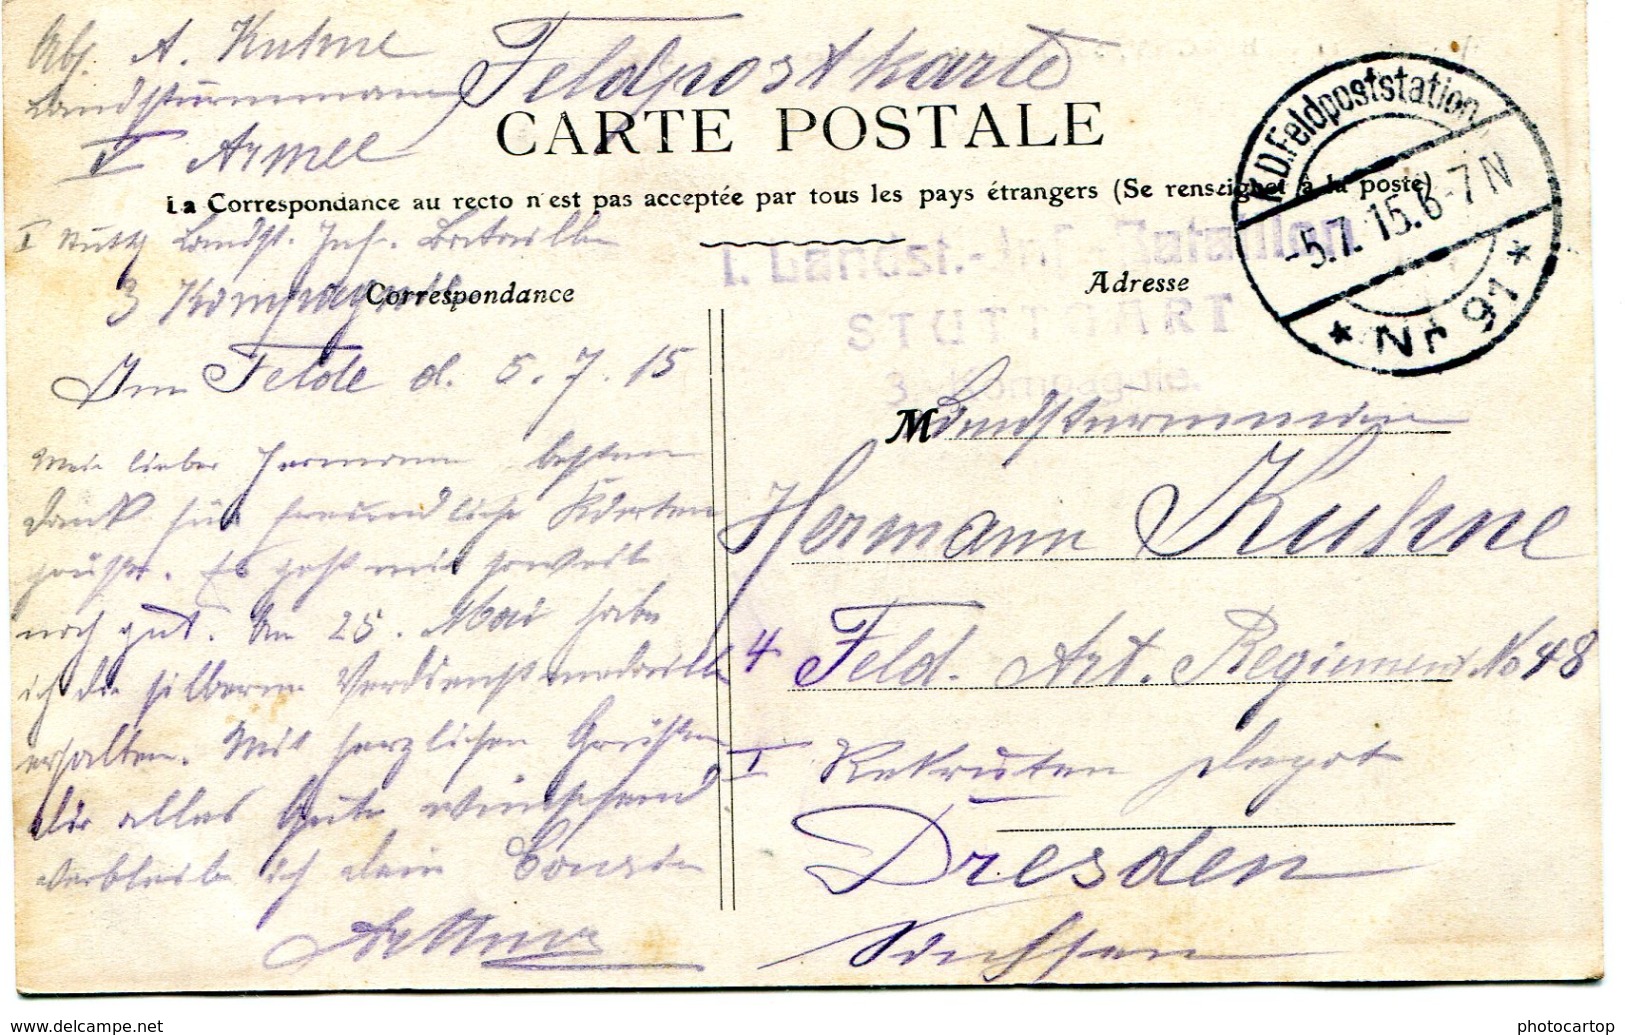 Abs. A. Kuhne
Landsturmmann
V Armee
Feldpostkarte
CARTE POSTALE
La Correspondance au recto n'est pas acceptée par tous les pays étrangers (Se renseigner à la poste)
K.D. Feldpoststation
-5.7.15. 6-7 N
* Nr 91 *
I Stuttg Landst. Inf. Bataillon
3 Kompagnie
Correspondance
I. Landst.-Inf.-Bataillon
STUTTGART
3. Kompagnie.
Adresse
Im Felde d. 5.7.15
Mein lieber Hermann besten
Dank für freundliche Karten
grüße. Es geht mir soweit
noch gut. Am 25. Mai habe
ich die silberne Verdienstmedaille
erhalten. Mit herzlichen Grüßen
Dir alles Gute wünschend
verbleibe ich dein Cousin
M Landsturmmann
Hermann Kuhne
4 Feld. Art. Regiment No 48
I Rekruten Depot
Dresden
Sachsen
www.delcampe.net
photocartop